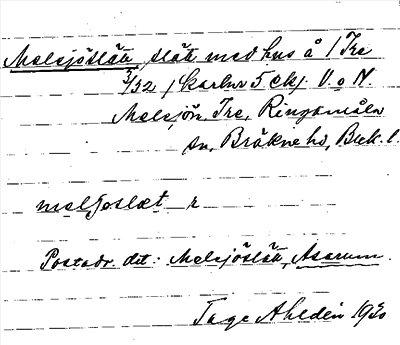 Melsjöslätt, slätt med hus å 1 Tre
3/32 / Karlsr 5 ekj. V. o N
Melsjön Tre, Ringamåla
sn, Bräkne hd, Blek. l.
melʃøslæt r
Postadr. det: Melsjöslätt, Asarum.
Tage Ahldén 1930